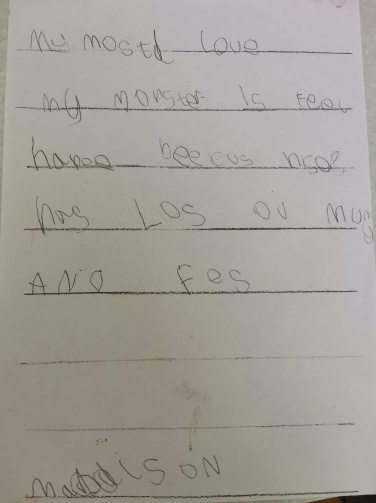 my mostd love
my monster is feel
haree beecus hges
has LOS OV muny
AND Fes
madison